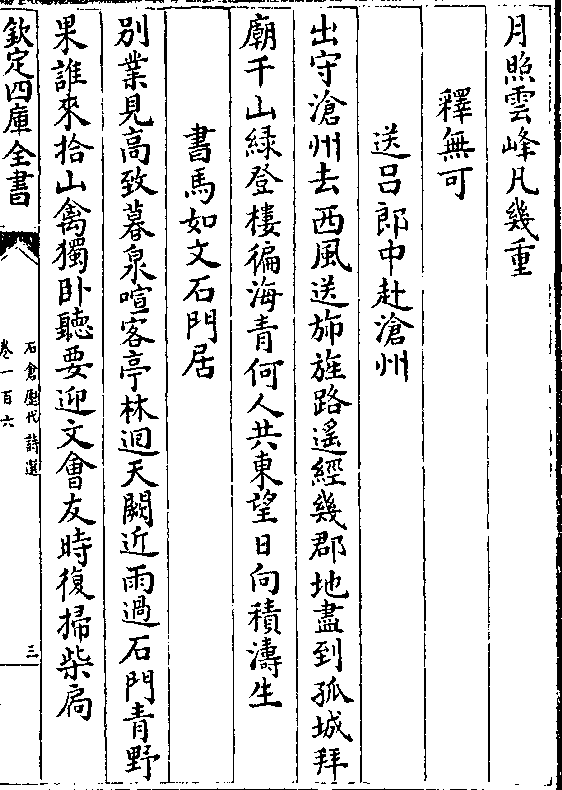 月照雲峰凡幾重
釋無可
送呂郎中赴滄州
出守滄州去西風送斾旌路遥經幾郡地盡到孤城拜
廟千山緑登樓徧海青何人共東望日向積濤生
書馬如文石門居
別業見高致暮泉喧客亭林迴天闕近雨過石門青野
果誰來拾山禽獨卧聽要迎文會友時復掃柴扃
欽定四庫全書
石倉歷代詩選
卷一百六
三